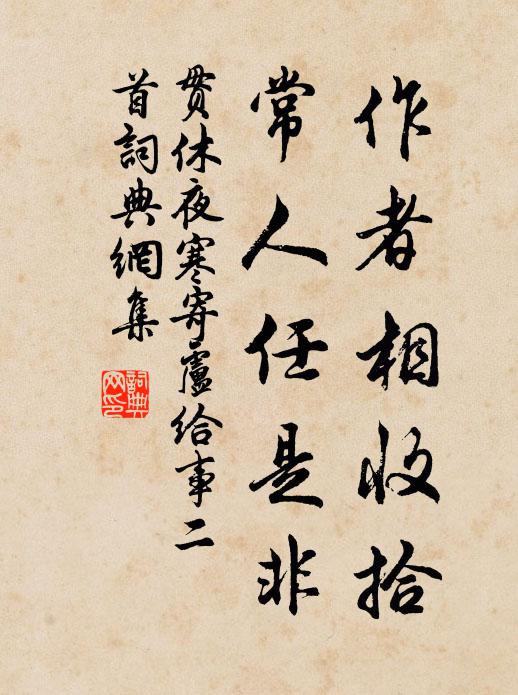 作者相收拾
常人任是非
貫休夜寒寄盧給事二
首詞典網集
詞典
网印